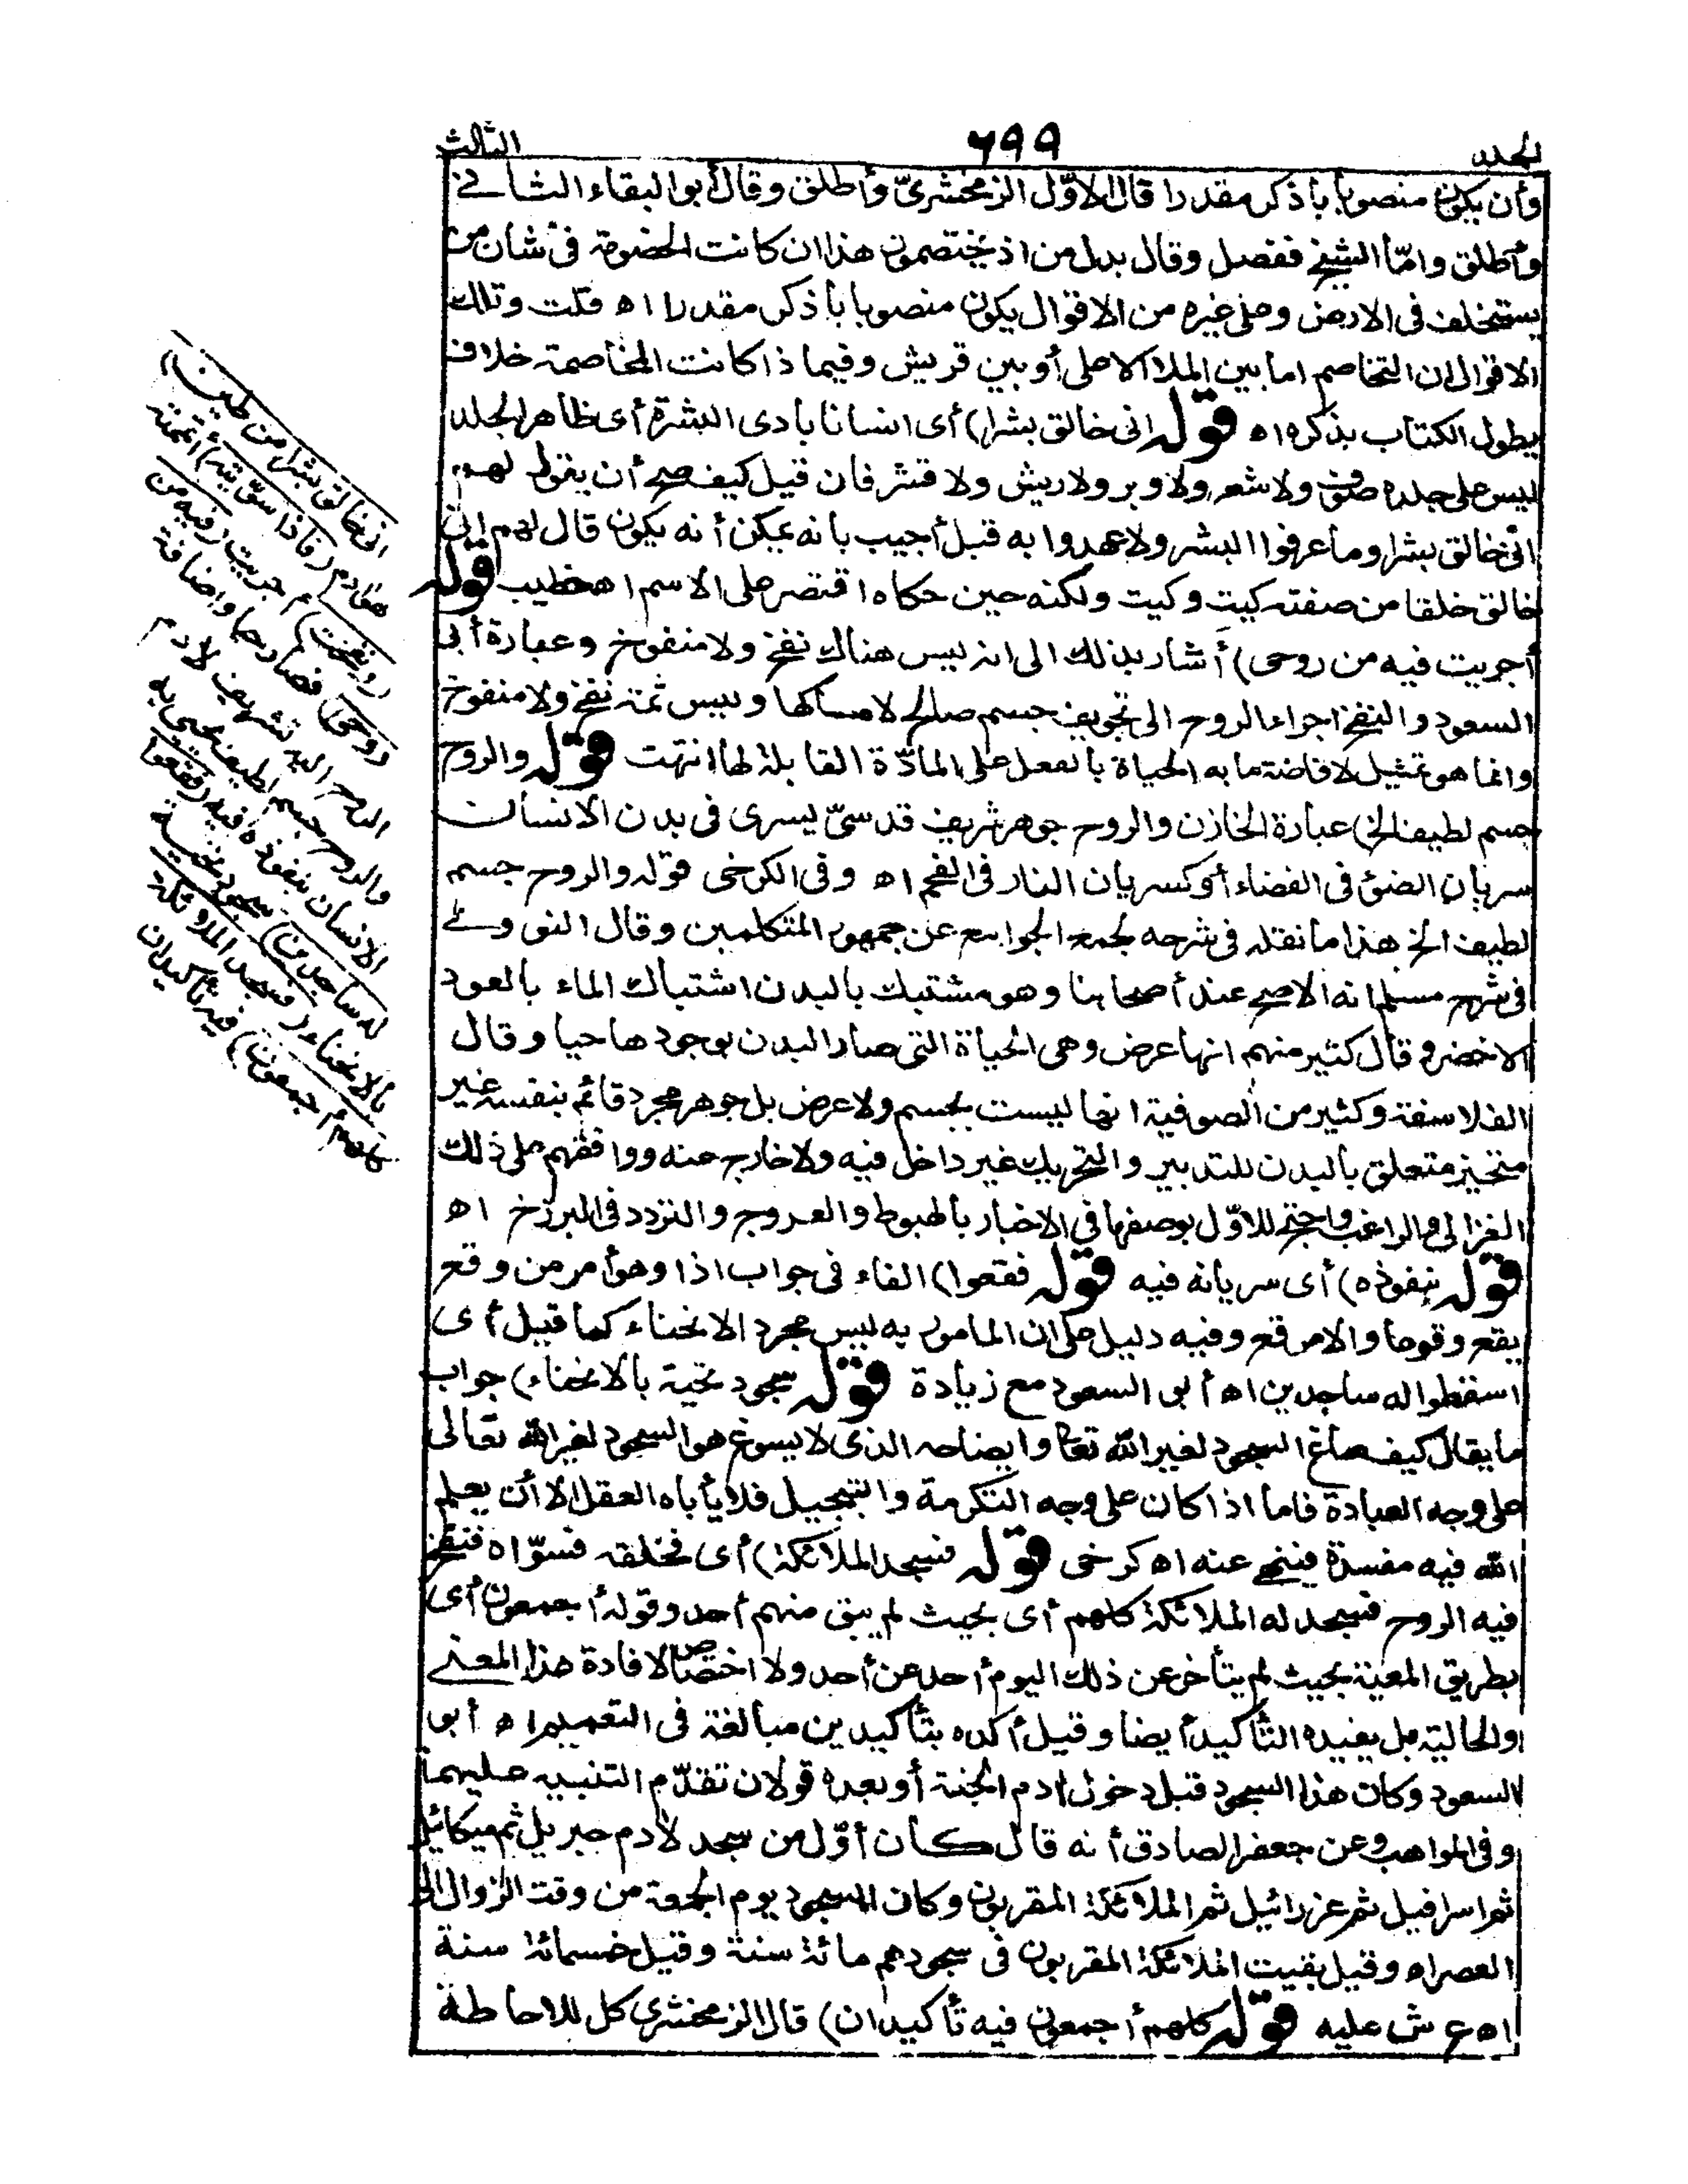 الجلد
٦٩٩
الثالث
وأن يكون منصوبا باذكر مقدرا قال الاوّل الزمخشريّ وأطلق وقال أبو البقاء الثانى
وأطلق وامّا الشيخ ففصل وقال بدل من اذ يختصمون هذا ان كانت الخصومة فى شان من
يستخلف فى الارض وعلى غيره من الاقوال يكون منصوبا باذكر مقدرا اه قلت وتلك
الاقوال ان التخاصم اما بين الملا الاعلى أو بين قريش وفيما ذا كانت المخاصمة خلاف
يطول الكتاب بذكره اه قوله انى خالق بشرا) أى انسانا بادى البشرة أى ظاهر الجلد
ليس على جلده صوف ولا شعر ولا وبر ولا ريش ولا قشر فان قيل كيف صح أن يقول لهم
انى خالق بشرا وما عرفوا البشر ولا عهدوا به قبل أجيب بانه يمكن أنه يكون قال لهم انى
خالق خلقا من صفته كيت وكيت ولكنه حين حكاه اقتصر على الاسم اه خطيب قوله
أجريت فيه من روحى) أشار بذلك الى انه ليس هناك نفخ ولا منفوخ وعبارة أبى
السعود والنفخ اجراء الروح الى تجويف جسم صالح لامساكها وليس ثمة نفخ ولا منفوخ
وانما هو تمثيل لافاضة ما به الحياة بالفعل على المادّة القابلة لها انتهت قوله والروح
جسم لطيف الخ) عبارة الخازن والروح جوهر شريف قدسىّ يسرى فى بدن الانسان
سريان الضئ فى الفضاء أو كسريان النار فى الفحم اه وفى الكرخى قوله والروح جسم
لطيف الخ هذا ما نقله فى شرحه لجمع الجوامع عن جمهور المتكلمين وقال النووى
فى شرح مسلم انه الاصح عند أصحابنا وهو مشتبك بالبدن اشتباك الماء بالعود
الاخضر وقال كثير منهم انها عرض وهى الحياة التى صار البدن بوجودها حيا وقال
الفلاسفة وكثير من الصوفية انها ليست بجسم ولا عرض بل جوهر مجرد قائم بنفسه غير
متحيز متعلق بالبدن للتدبير والتحريك غير داخل فيه ولا خارج عنه ووافقهم على ذلك
الغزالى والراغب واحتج للاوّل بوصفها فى الاخبار بالهبوط والعروج والتردد فى البرزخ اه
قوله بنفوذه) أى سريانه فيه قوله فقعوا) الفاء فى جواب اذا وهو أمر من وقع
يقع وقوعا والامر قع وفيه دليل على ان المامور به ليس مجرد الانحناء كما قيل أى
اسقطوا له ساجدين اه أبى السعود مع زيادة قوله سجود تحية بالانحناء) جواب
ما يقال كيف ساغ السجود لغير الله تعا وايضاحه الذى لا يسوغ هو السجود لغير الله تعالى
على وجه العبادة فاما اذا كان على وجه التكرمة والتبجيل فلا يأباه العقل الا أن يعلم
الله فيه مفسدة فينهى عنه اه كرخى قوله فسجد الملائكة) أى فخلقه فسوّاه فنفخ
فيه الروح فسجد له الملائكة كلهم أى بحيث لم يبق منهم أحد وقوله أجمعون أى
بطريق المعية بحيث لم يتأخر عن ذلك اليوم أحد عن أحد ولا اختصاص لافادة هذا المعنى
والحالية بل يفيده التأكيد أيضا وقيل أكده بتأكيدين مبالغة فى التعميم اه أبو
السعود وكان هذا السجود قبل دخول ادم الجنة أو بعده قولان تقدّم التنبيه عليهما
وفى المواهب وعن جعفر الصادق أنه قال كان أوّل من سجد لادم جبريل ثم ميكائيل
ثم اسرافيل ثم عزرائيل ثم الملائكة المقربون وكان السجود يوم الجمعة من وقت الزوال الى
العصر اه وقيل بقيت الملائكة المقربون فى سجودهم مائة سنة وقيل خمسمائة سنة
اه ع ش عليه قوله كلهم أجمعون فيه تأكيدان) قال الزمخشرى كل للاحاطة
انى خالق بشرا من طين)
هو ادم (فاذا سوّيته) أتممته
(ونفخت) أجريت (فيه من
روحى) فصار حيا واضافة
الروح اليه تشريف لادم
والروح جسم لطيف يحيى به
الانسان بنفوذه فيه (فقعوا
له ساجدين) سجود تحية
بالانحناء (فسجد الملائكة
كلهم أجمعون) فيه تأكيدان